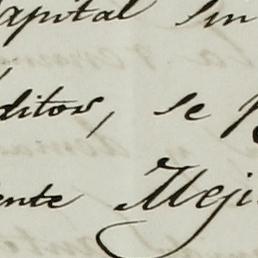 apital sin
ditos, se
ente Meji